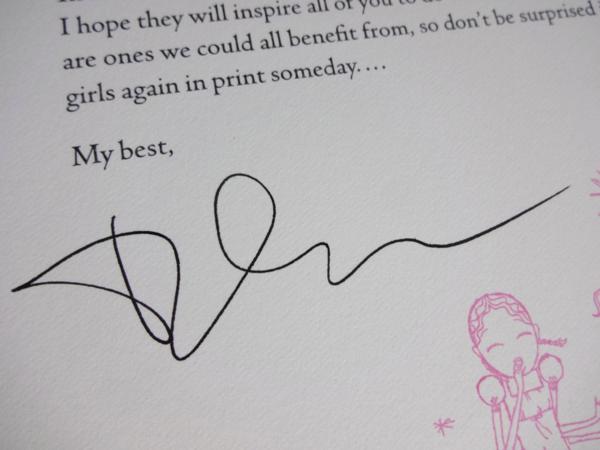 I hope they will inspire all of you to
are ones we could all benefit from, so don't be surprised
girls again in print someday....
My best,